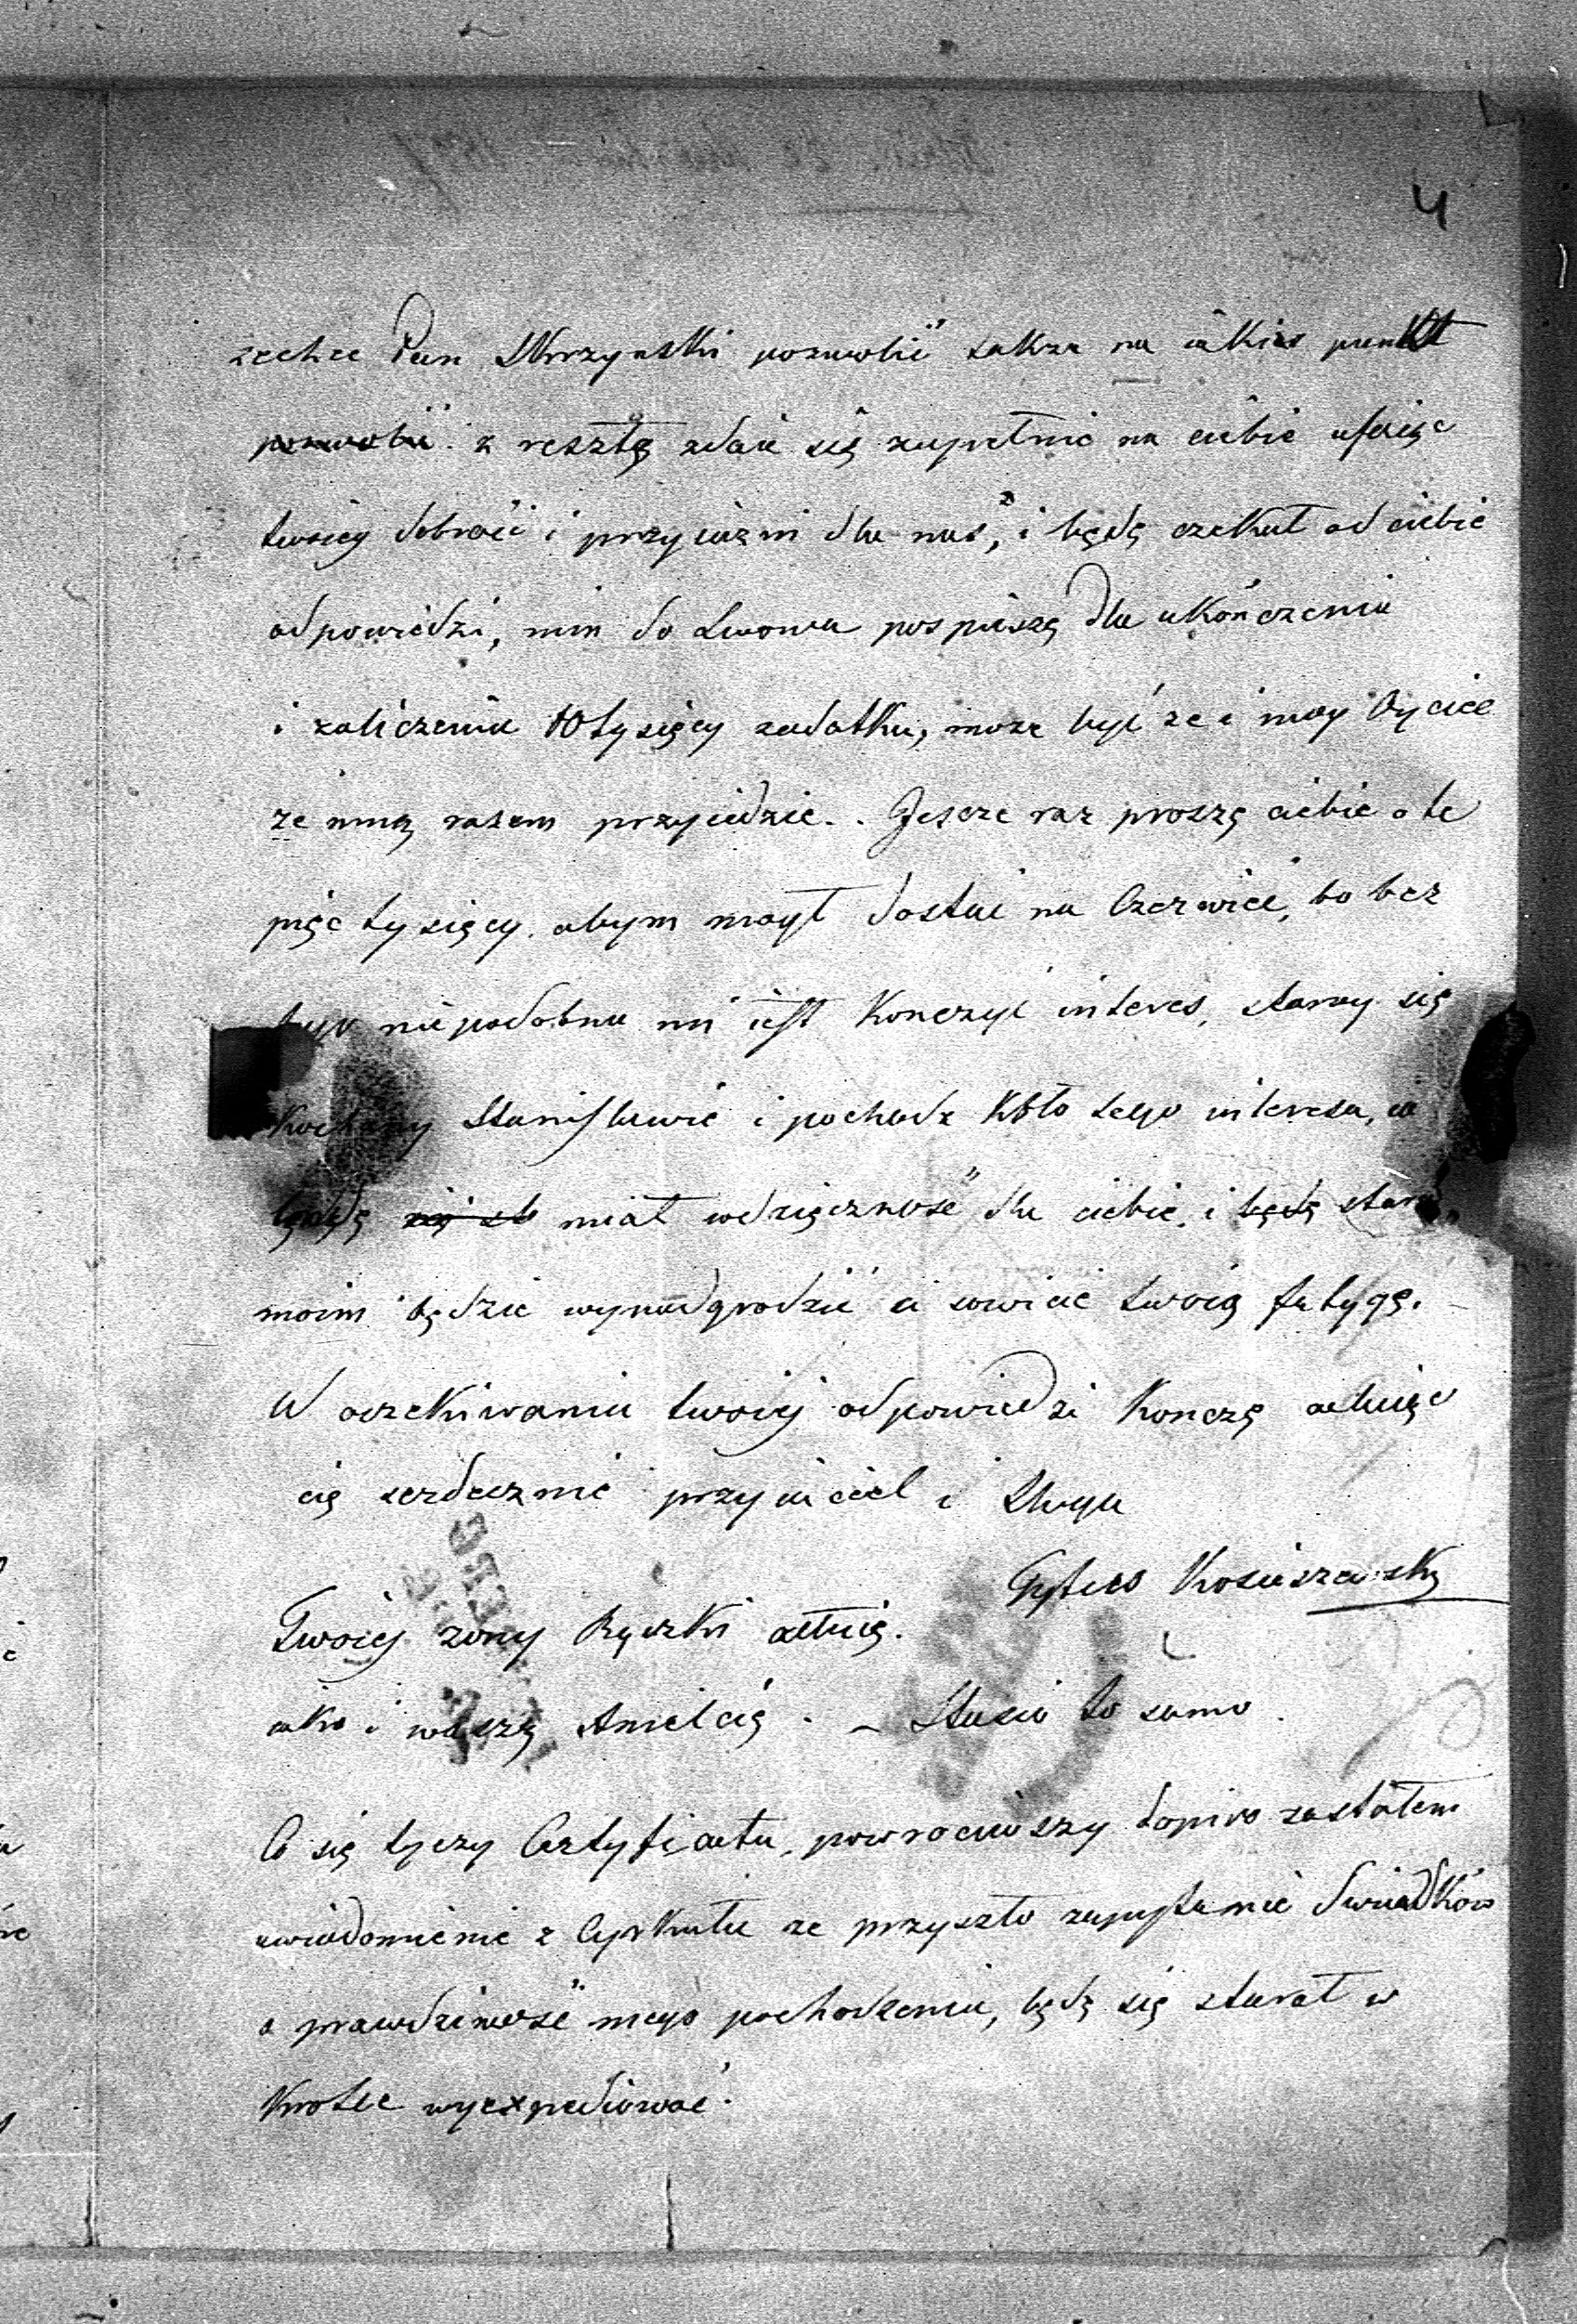 4
zechce Pan Skrzynski pozwolić także na iakis punkt
z resztą zdaie się zupełnie na ciebie ufaiąc
twoiey dobroci i przyiazni dla nas, i będę czekał od ciebie
odpowiedzi, nim do Lwowa pospieszę dla ukończenia
i zaliczenia 10 tysięcy zadatku, może być że i moy Oyciec
ze mną razem przyiedzie. Jescze raz proszę ciebie o te
pięc tysięcy abym mogł dostac na Czerwiec, bo bez
tego niepodobna mi iest Konczyć interes, staray się
Kochany Stanisławie i pochodz Koło tego interesu, a
będę miał wdzięcznosć dla ciebie, i będę
moim będzie wynadgrodzić ci sowicie twoią fatygę.
W oczekiwaniu twoiey odpowiedzi Konczę
cię serdecznie przyiaciel i Sługa
Tytus Kosieszewski
Twoiey zony Rączki całuię.
iako i waszą Anielcię. – Stasio to samo.
Co się tyczy Certyficatu, powrociwszy dopiro zastałem
uwiadomienie z Cyrkułu ze przyszło zapytanie Swiadków
o prawdziwosć mego pochodzenia, będę się starał w
Krotce wyexpediowac.